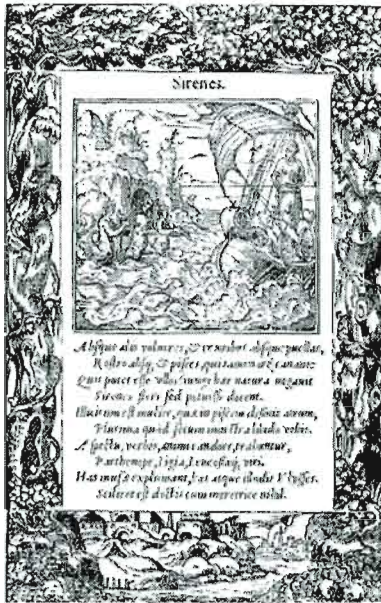 Sirenes.
Absque alis volucres, & cruribus absque puellas,
Rostro absq; & pisces, qui tamen ore canant:
Quis putet esse ullos? iungi hæc natura negavit
Sirenes fieri sed potuisse docent.
Illicitum est mulier, quæ in piscem desinit atrum,
Plurima quòd secum monstra libido vehit.
Aspectu, verbis, animi candore, trahuntur,
Parthenope, Ligia, Leucosiaq; viri.
Has musæ explumant, has atque illudit Vlysses.
Scilicet est doctis cum meretrice nihil.